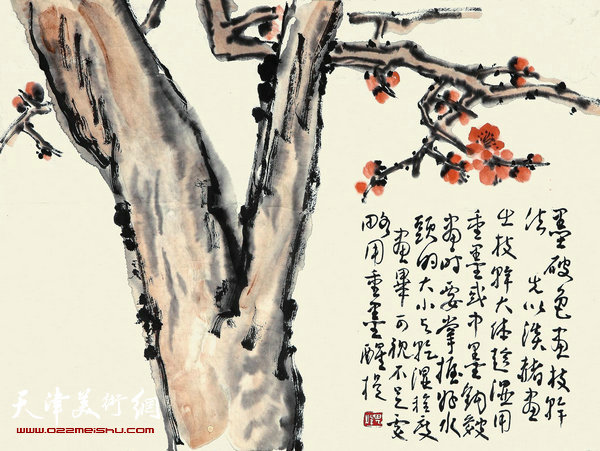 墨破色画枝幹
法 先以淡赭画
出枝幹大体趁湿用
重墨或中墨钩皴
画时要掌握好水
頭的大小与乾湿程度
画畢可視不足處
略用重墨醒提
天津美術網
www.022meishu.com